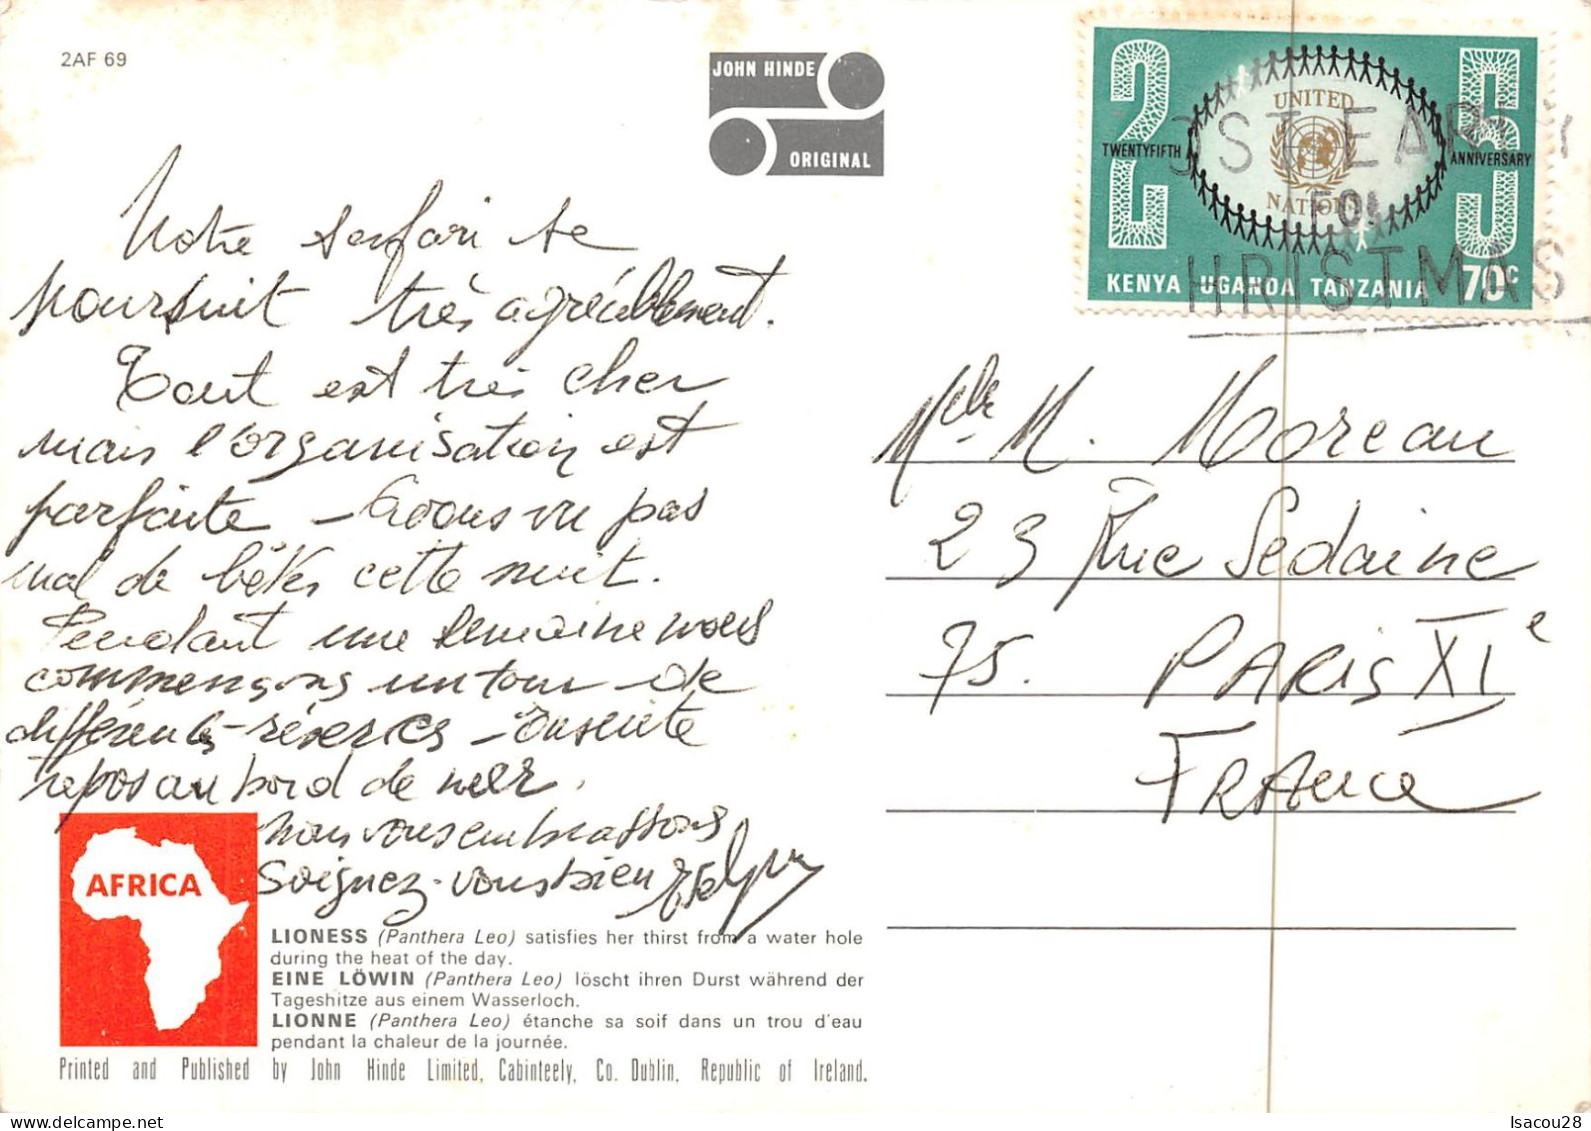 2AF 69
JOHN HINDE
ORIGINAL
Notre safari se
poursuit très agréablement.
Tout est très cher
mais l'organisation est
parfaite – Avons vu pas
mal de bêtes cette nuit.
Pendant une semaine nous
commençons un tour de
différentes réserves – Ensuite
repos au bord de mer.
Nous vous embrassons
Soignez-vous bien
25
TWENTYFIFTH
ANNIVERSARY
UNITED
NATIONS
KENYA UGANDA TANZANIA 70c
OST EARLY
FOR
HRISTMAS
Mlle M. Moreau
23 Rue Sedaine
75. PARIS XIe
FRANCE
AFRICA
LIONESS (Panthera Leo) satisfies her thirst from a water hole
during the heat of the day.
EINE LÖWIN (Panthera Leo) löscht ihren Durst während der
Tageshitze aus einem Wasserloch.
LIONNE (Panthera Leo) étanche sa soif dans un trou d'eau
pendant la chaleur de la journée.
Printed and Published by John Hinde Limited, Cabinteely, Co. Dublin, Republic of Ireland.
Isacou28